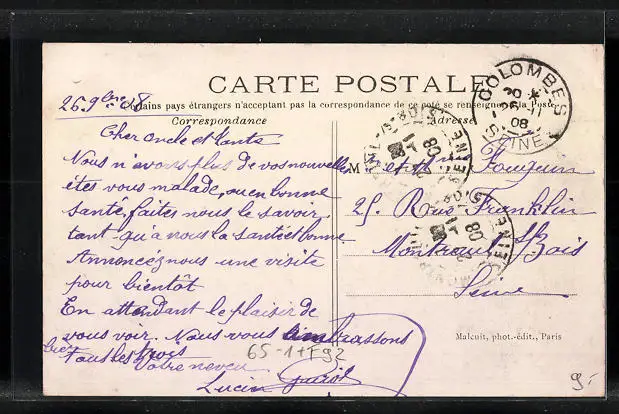 CARTE POSTALE
Certains pays étrangers n'acceptent pas la correspondance de ce coté se renseigner à la Poste
Correspondance
Adresse
26 9bre 08
Cher oncle et tante
Nous n'avons plus de vos nouvelles
êtes vous malade, ou en bonne
santé, faites nous le savoir
tant qu'à nous la santé est bonne
Annoncez nous une visite
pour bientôt
En attendant le plaisir de
vous voir. Nous vous embrassons
bien
tous les trois
Votre neveu
Lucien
65-1+F92
M et Mme
25 Rue Franklin
Montreuil s/Bois
Seine
COLOMBES
(SEINE)
08
Malcuit, phot.-édit., Paris
9.-